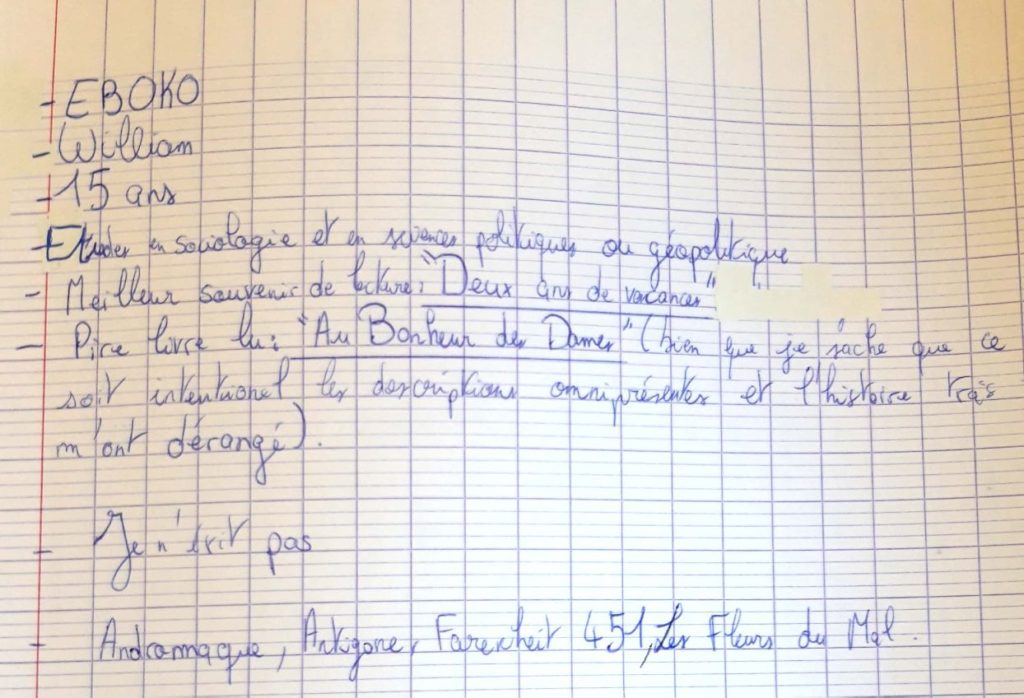 - EBOKO
- William
- 15 ans
- Etudes en sociologie et en sciences politiques ou géopolitique
- Meilleur souvenir de lecture: "Deux ans de vacances"
- Pire livre lu: "Au Bonheur des Dames" (bien que je sache que ce
soit intentionel les descriptions omniprésentes et l'histoire
m'ont dérangé).
- Je n'écrit pas
- Andromaque, Antigone, Farenheit 451, Les Fleurs du Mal.